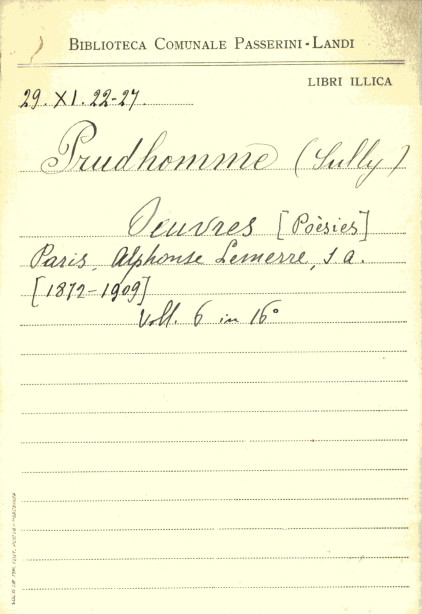 BIBLIOTECA COMUNALE PASSERINI-LANDI
LIBRI ILLICA
29. XI. 22-27.
Prudhomme (Sully)
Oeuvres [Poèsies]
Paris, Alphonse Lemerre, s.a.
[1872-1909]
Voll. 6 in 16°